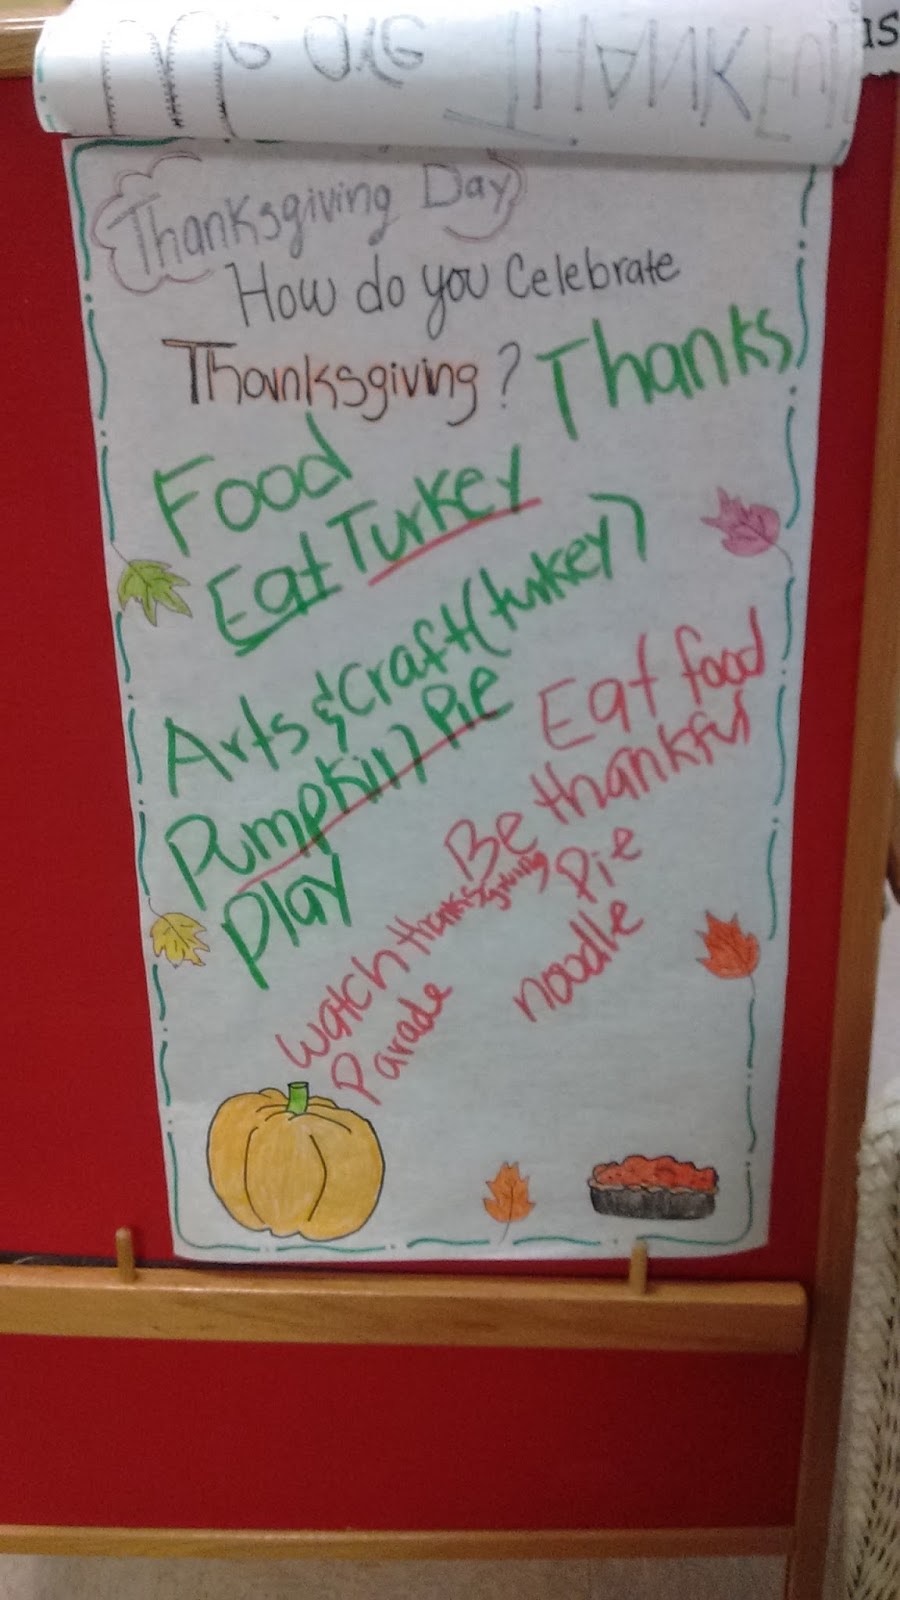 We are THANKFUL
us
Thanksgiving Day
How do you Celebrate
Thanksgiving?
Thanks
Food
Eat Turkey
Arts & Craft (turkey)
Pumpkin Pie
Play
Eat food
Be thankful
Watch thanksgiving
Parade
Pie
noodle